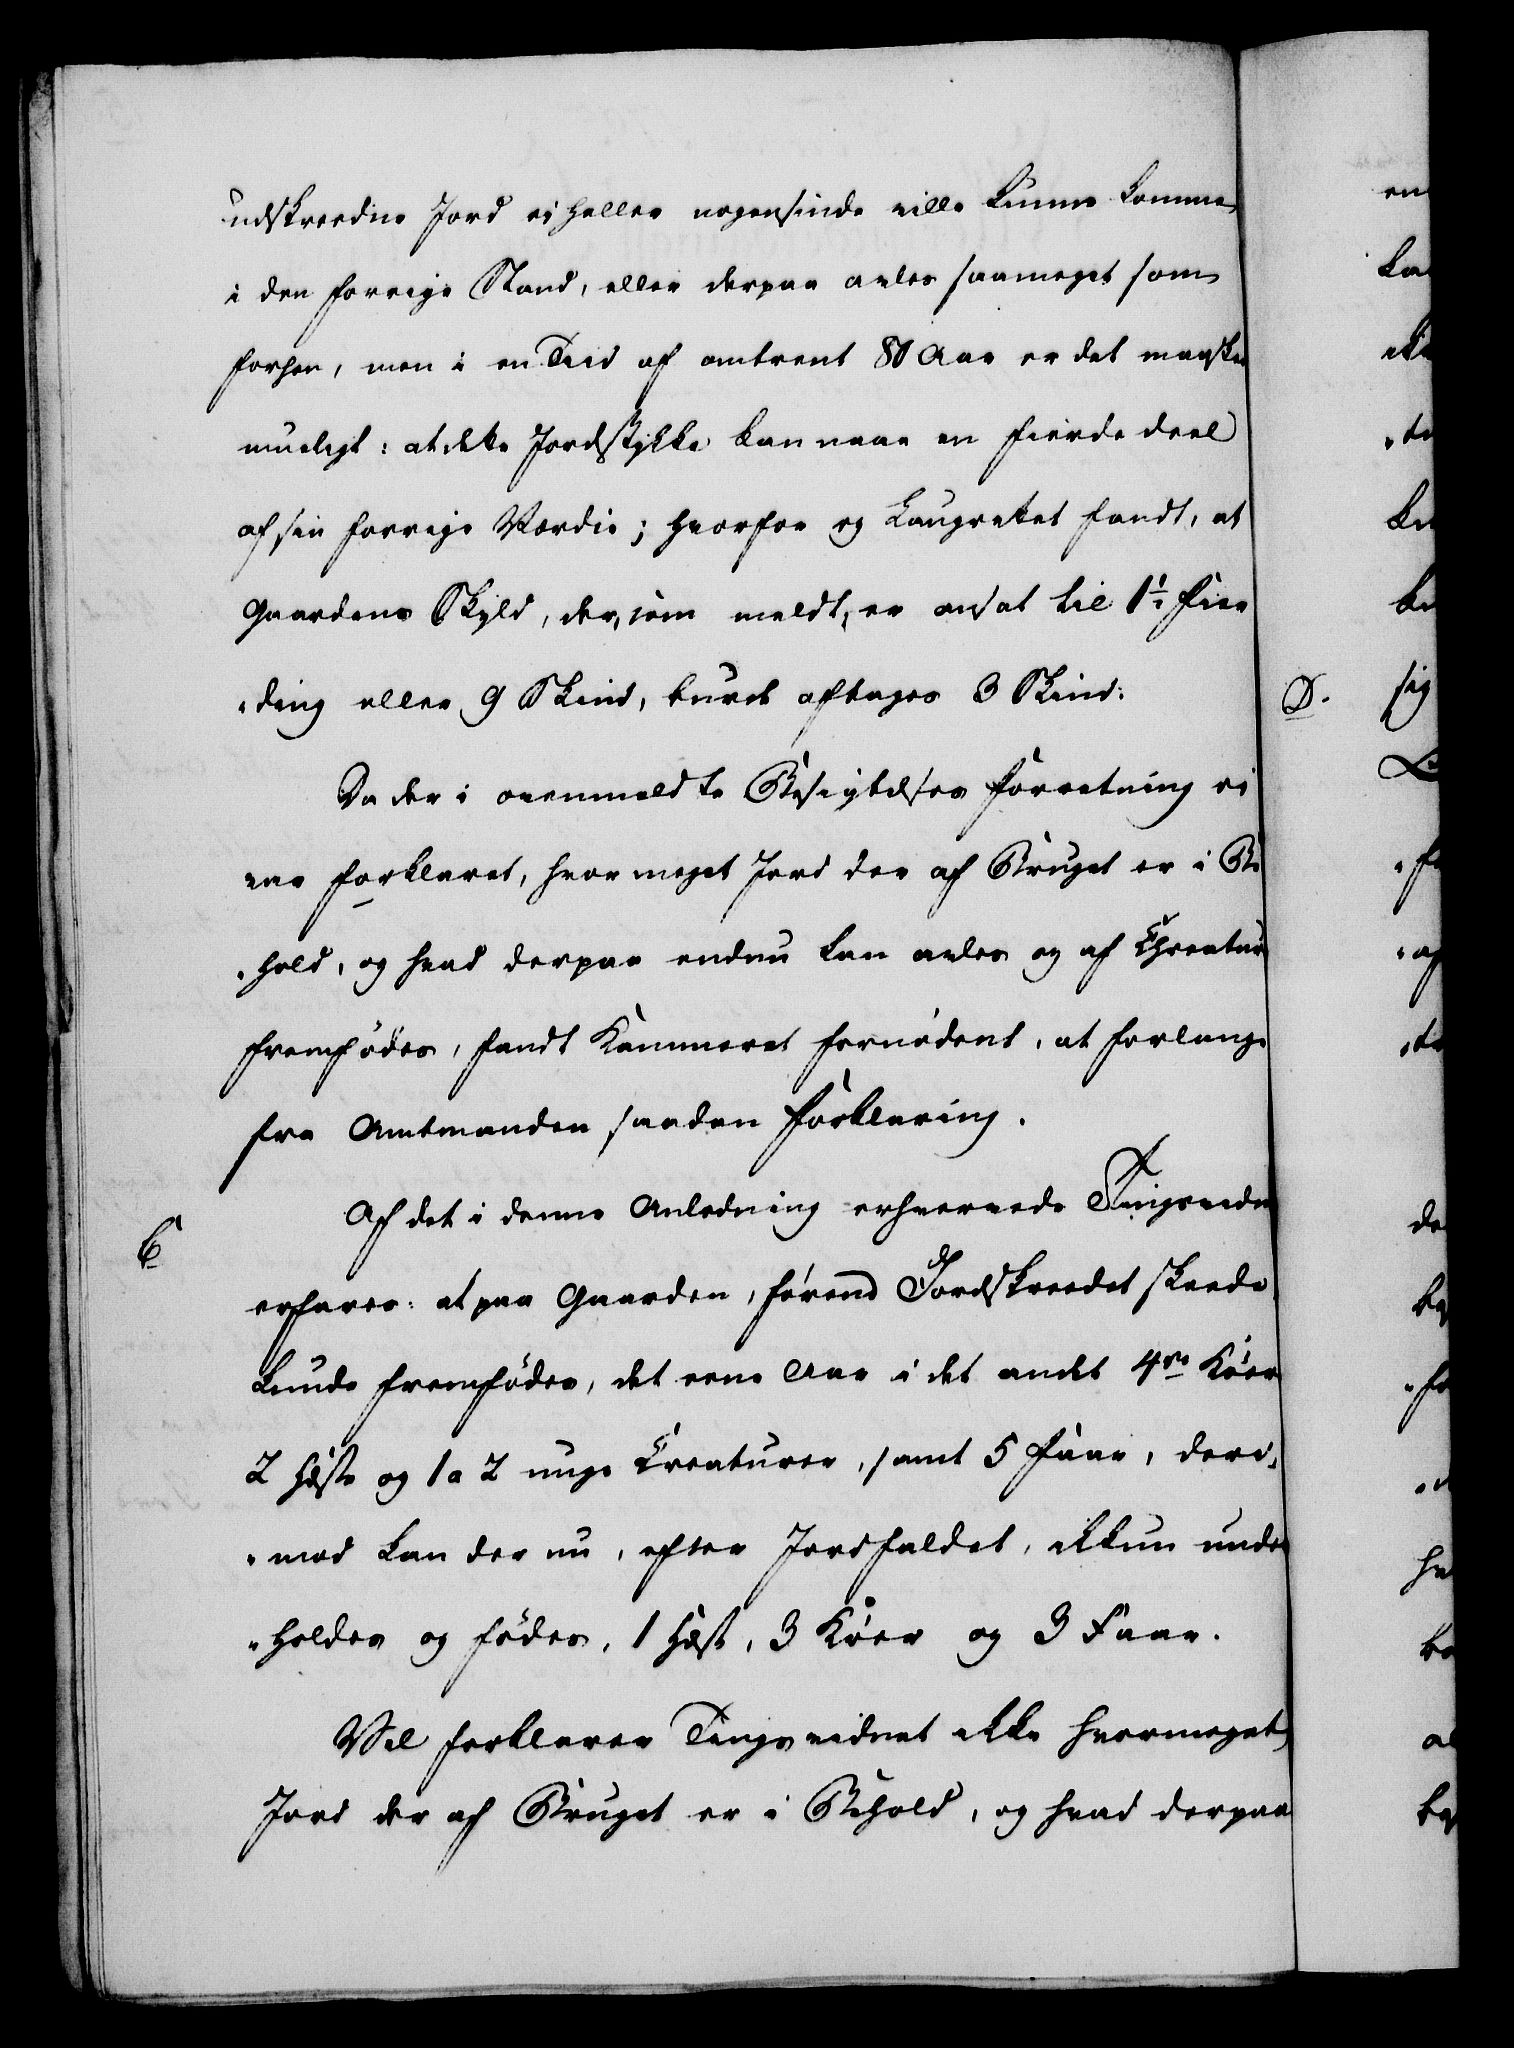 udskreedne Jord ei heller nogensinde ville kunne komme
i den forrige Stand, eller derpaa avles saameget som
forhen, men i en Tiid af omtrent 80 Aar er det maaskee
mueligt: at dette Jordstykke kan naae en fierde deel
af sin forrige Værdie; hvorfor og Laugrettet fandt, at
Gaardens Skyld, der, som meldt, er ansat til 1½ Fier
„ding eller 9 Skind, burde aftages 3 Skind:
Da der i ovenmeldte Besigtelses Forretning ei
var forklaret, hvor meget Jord der af Bruget er i Be
„hold, og hvad derpaa endnu kan avles og af Creatur
fremfødes, fandt Kammeret fornødent, at forlange
fra Amtmanden saadan Forklaring.
C
Af det i denne Anledning erhvervede Tingsvidne
erfares: at paa Gaarden, førend Jordskreedet skeede
kunde fremfødes, det eene Aar i det andet 4re Køer
2 Heste og 1 a 2 unge Creaturer, samt 5 Faar, deri„
„mod kan der nu, efter Jordfaldet, ikkun under
„holdes og fødes, 1 Hest, 3 Køer og 3 Faar.
Vel forklarer Tingsvidnet ikke hvormeget
Jord der af Bruget er i Behold, og hvad derpaa
D.
sig